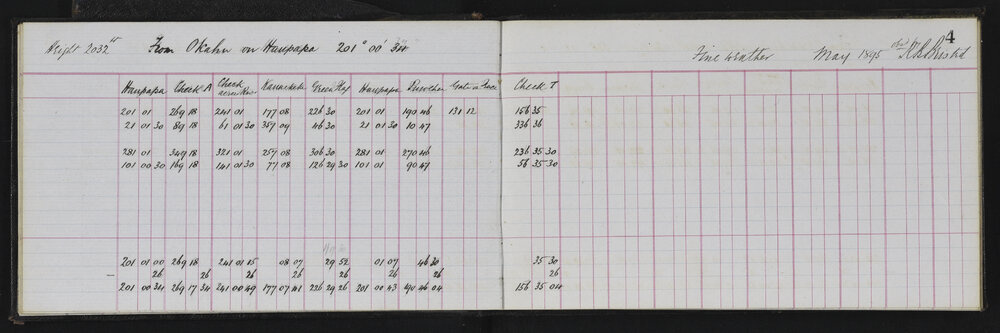 4
Height 2032 ft From Okahu on Haupapa 201° 00' 34" Fine weather May 1895 obsd by
Haupapa Check A Check across River Green Flag Haupapa Gate in Fence Check T
201 01 269 18 241 01 177 08 226 30 201 01 190 46 131 12 156 35
21 01 30 89 18 61 01 30 357 09 46 30 21 01 30 10 47 336 36
281 01 349 18 321 01 257 08 306 30 281 01 270 46 236 35 30
101 00 30 169 18 141 01 30 77 08 126 29 30 101 01 90 47 56 35 30
201 01 00 269 18 241 01 15 08 07 29 52 01 07 46 30 35 30
— 26 26 26 26 26 26 26 26
201 00 34 269 17 34 241 00 49 177 07 41 226 29 26 201 00 43 190 46 04 156 35 04